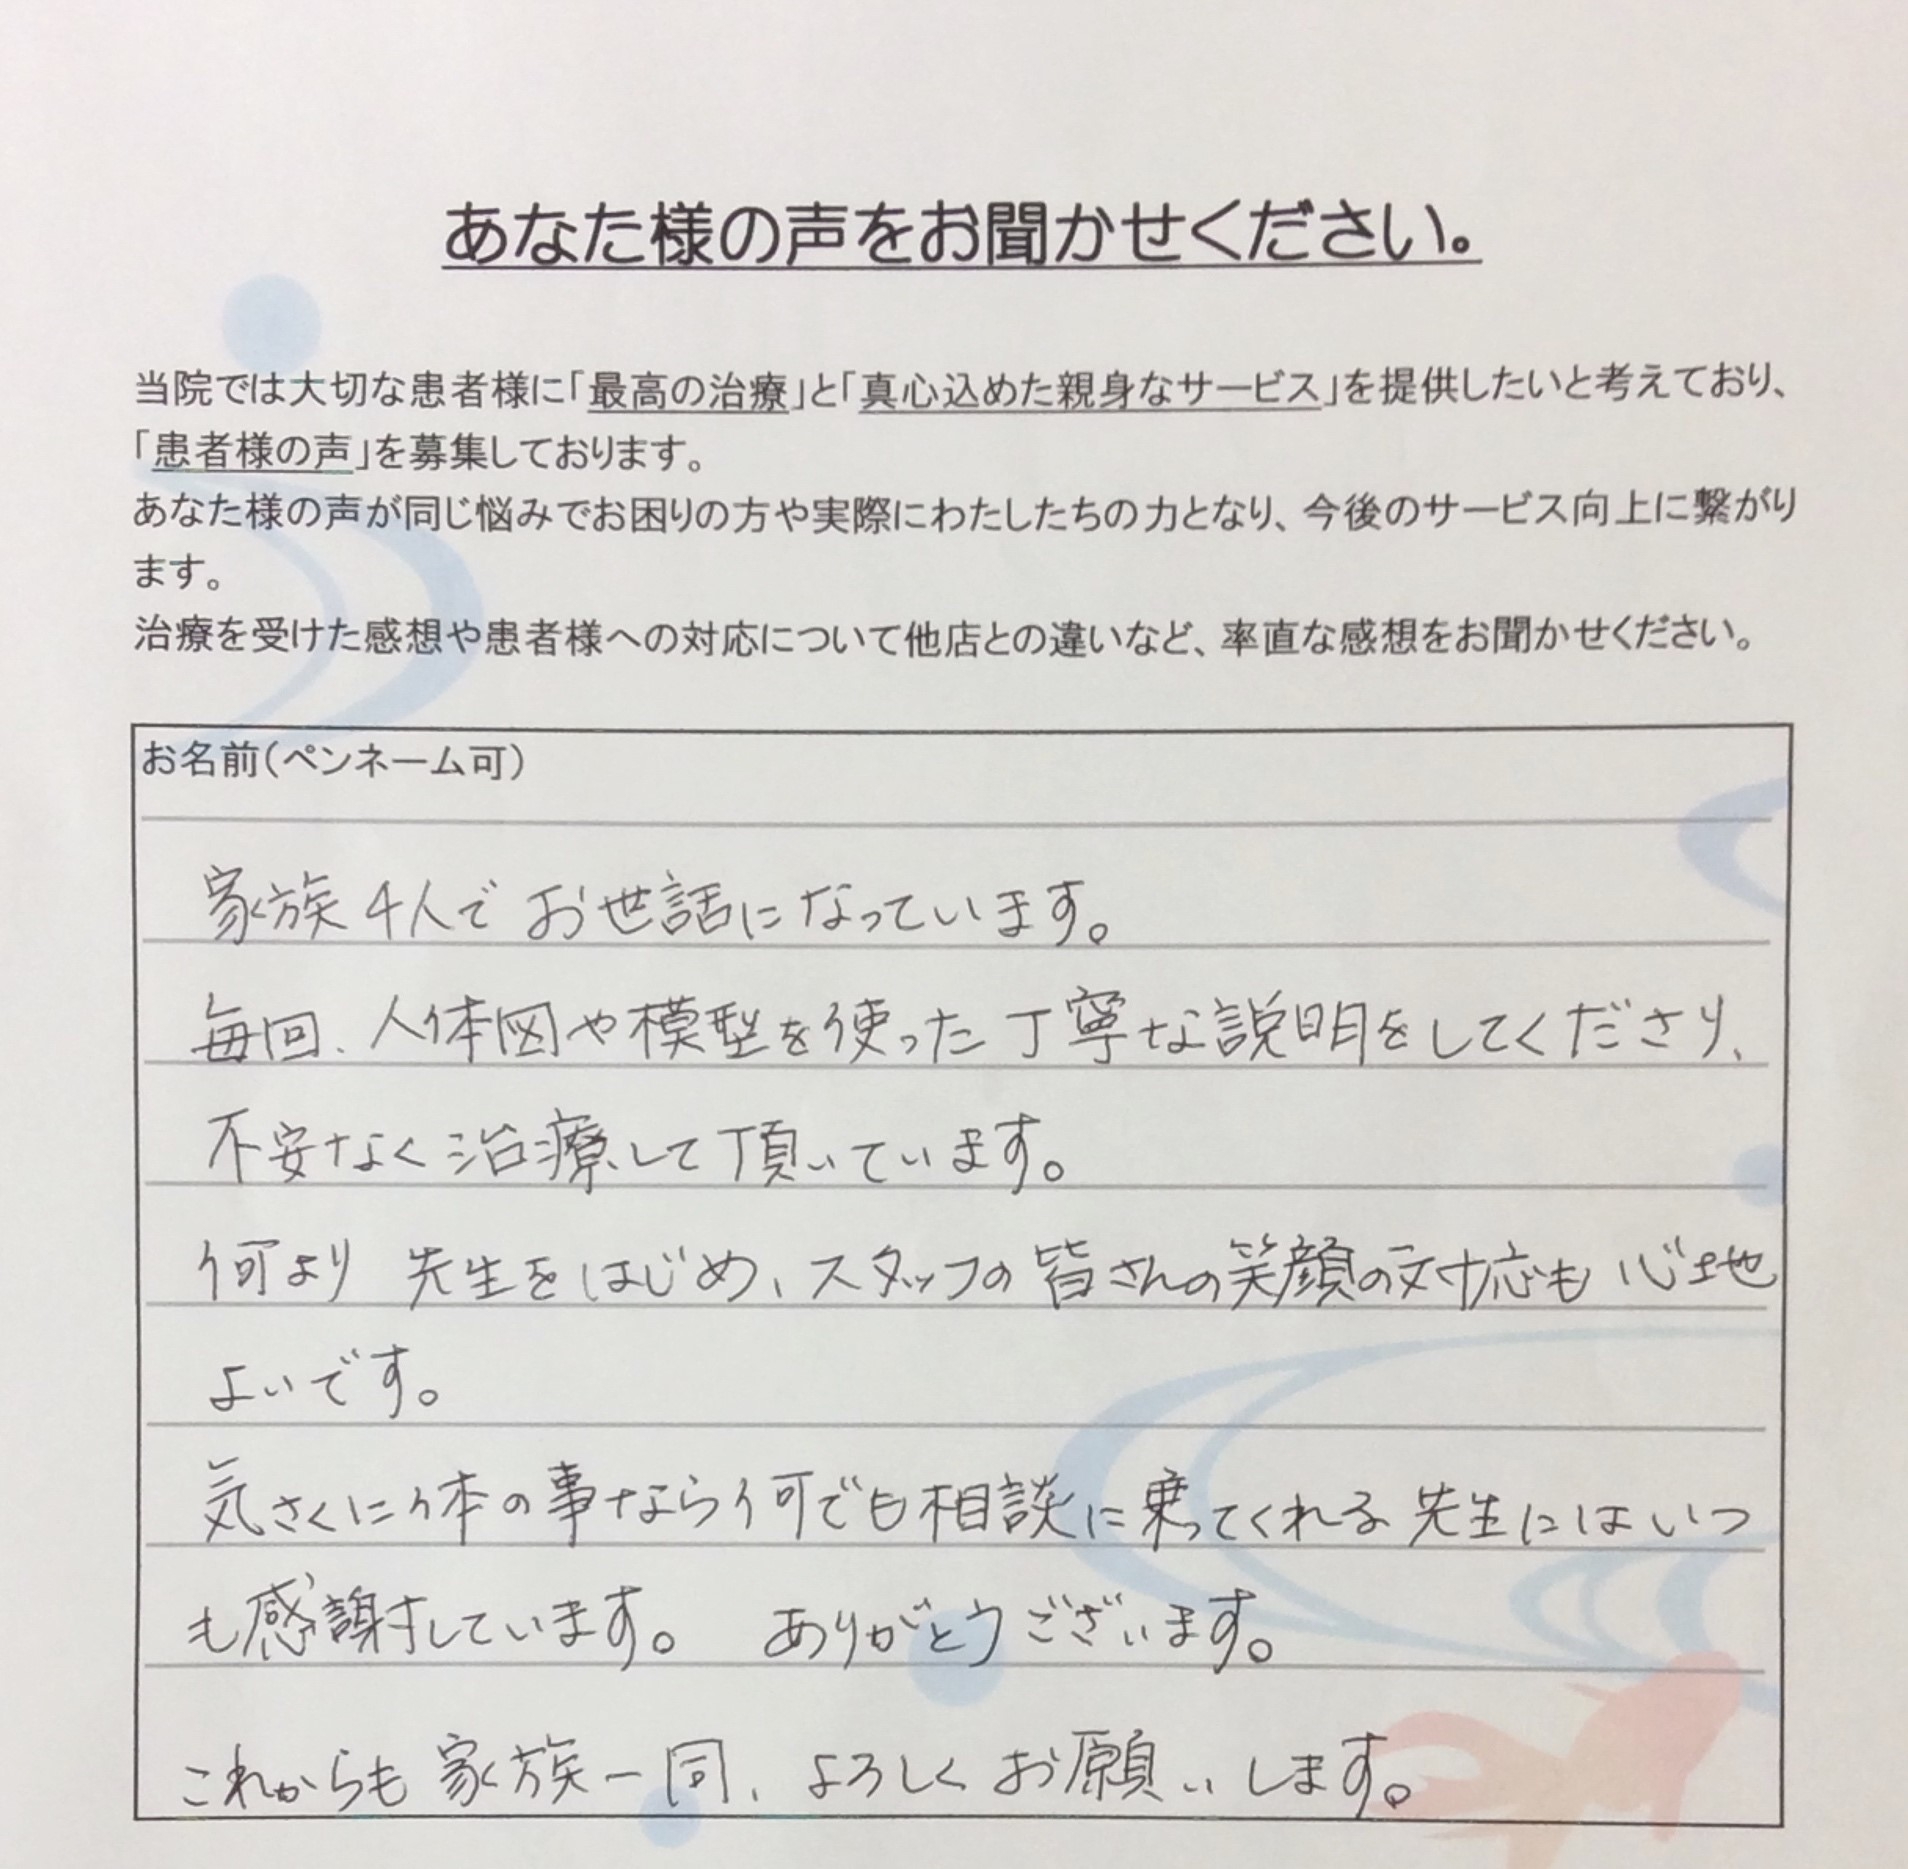 あなた様の声をお聞かせください。
当院では大切な患者様に「最高の治療」と「真心込めた親身なサービス」を提供したいと考えており、
「患者様の声」を募集しております。
あなた様の声が同じ悩みでお困りの方や実際にわたしたちの力となり、今後のサービス向上に繋がり
ます。
治療を受けた感想や患者様への対応について他店との違いなど、率直な感想をお聞かせください。
お名前(ペンネーム可)
家族4人でお世話になっています。
毎回、人体図や模型を使った丁寧な説明をしてくださり、
不安なく治療して頂いています。
何より 先生をはじめ、スタッフの皆さんの笑顔の対応も心地
よいです。
気さくに体の事なら何でも相談に乗ってくれる先生にはいつ
も感謝しています。 ありがとうございます。
これからも家族一同、よろしくお願いします。